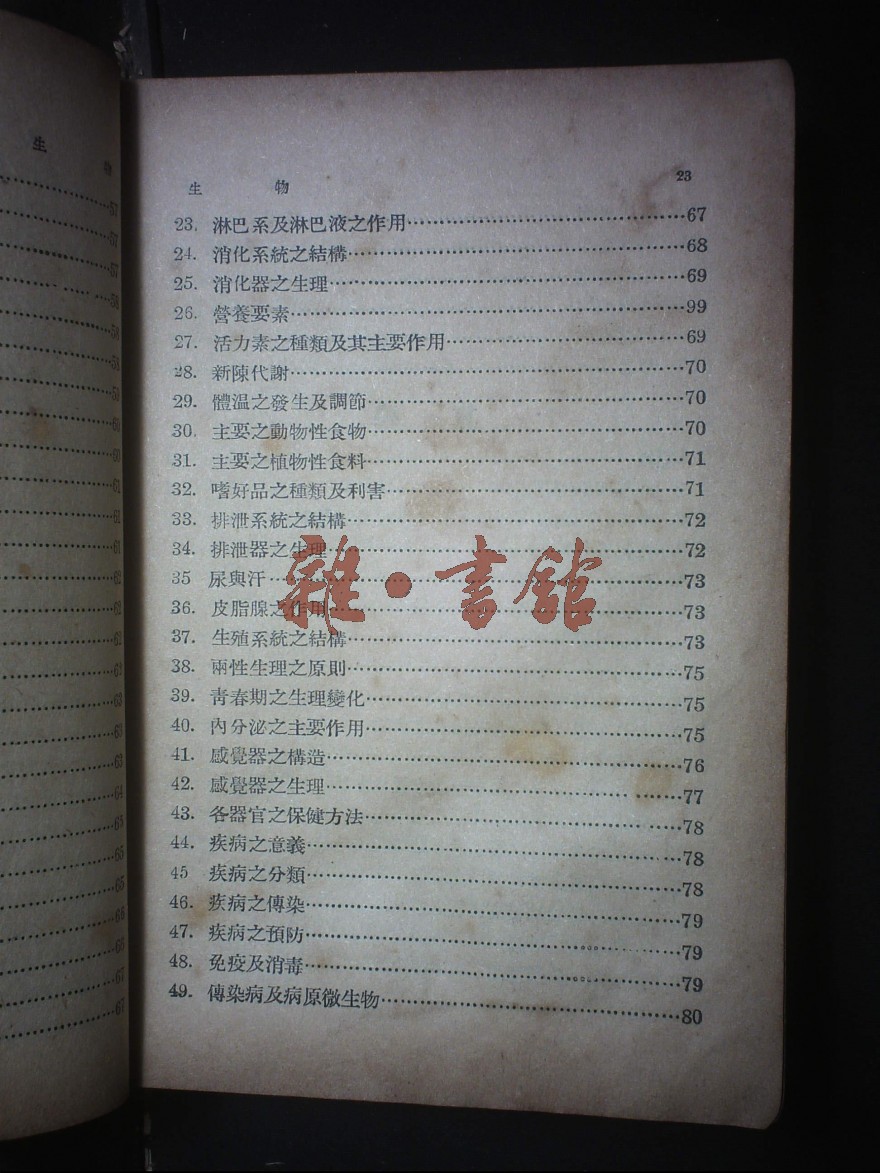 生 物
57
57
57
58
58
58
59
60
60
61
61
61
62
62
62
62
63
63
63
64
65
65
65
66
66
67
67
生 物 23
23. 淋巴系及淋巴液之作用……67
24. 消化系統之結構……68
25. 消化器之生理……69
26. 營養要素……99
27. 活力素之種類及其主要作用……69
28. 新陳代謝……70
29. 體温之發生及調節……70
30. 主要之動物性食物……70
31. 主要之植物性食料……71
32. 嗜好品之種類及利害……71
33. 排泄系統之結構……72
34. 排泄器之生理……72
35 尿與汗……73
36. 皮脂腺之作用……73
37. 生殖系統之結構……73
38. 兩性生理之原則……75
39. 靑春期之生理變化……75
40. 內分泌之主要作用……75
41. 感覺器之構造……76
42. 感覺器之生理……77
43. 各器官之保健方法……78
44. 疾病之意義……78
45 疾病之分類……78
46. 疾病之傳染……79
47. 疾病之預防……79
48. 免疫及消毒……79
49. 傳染病及病原微生物……80
雜·書館